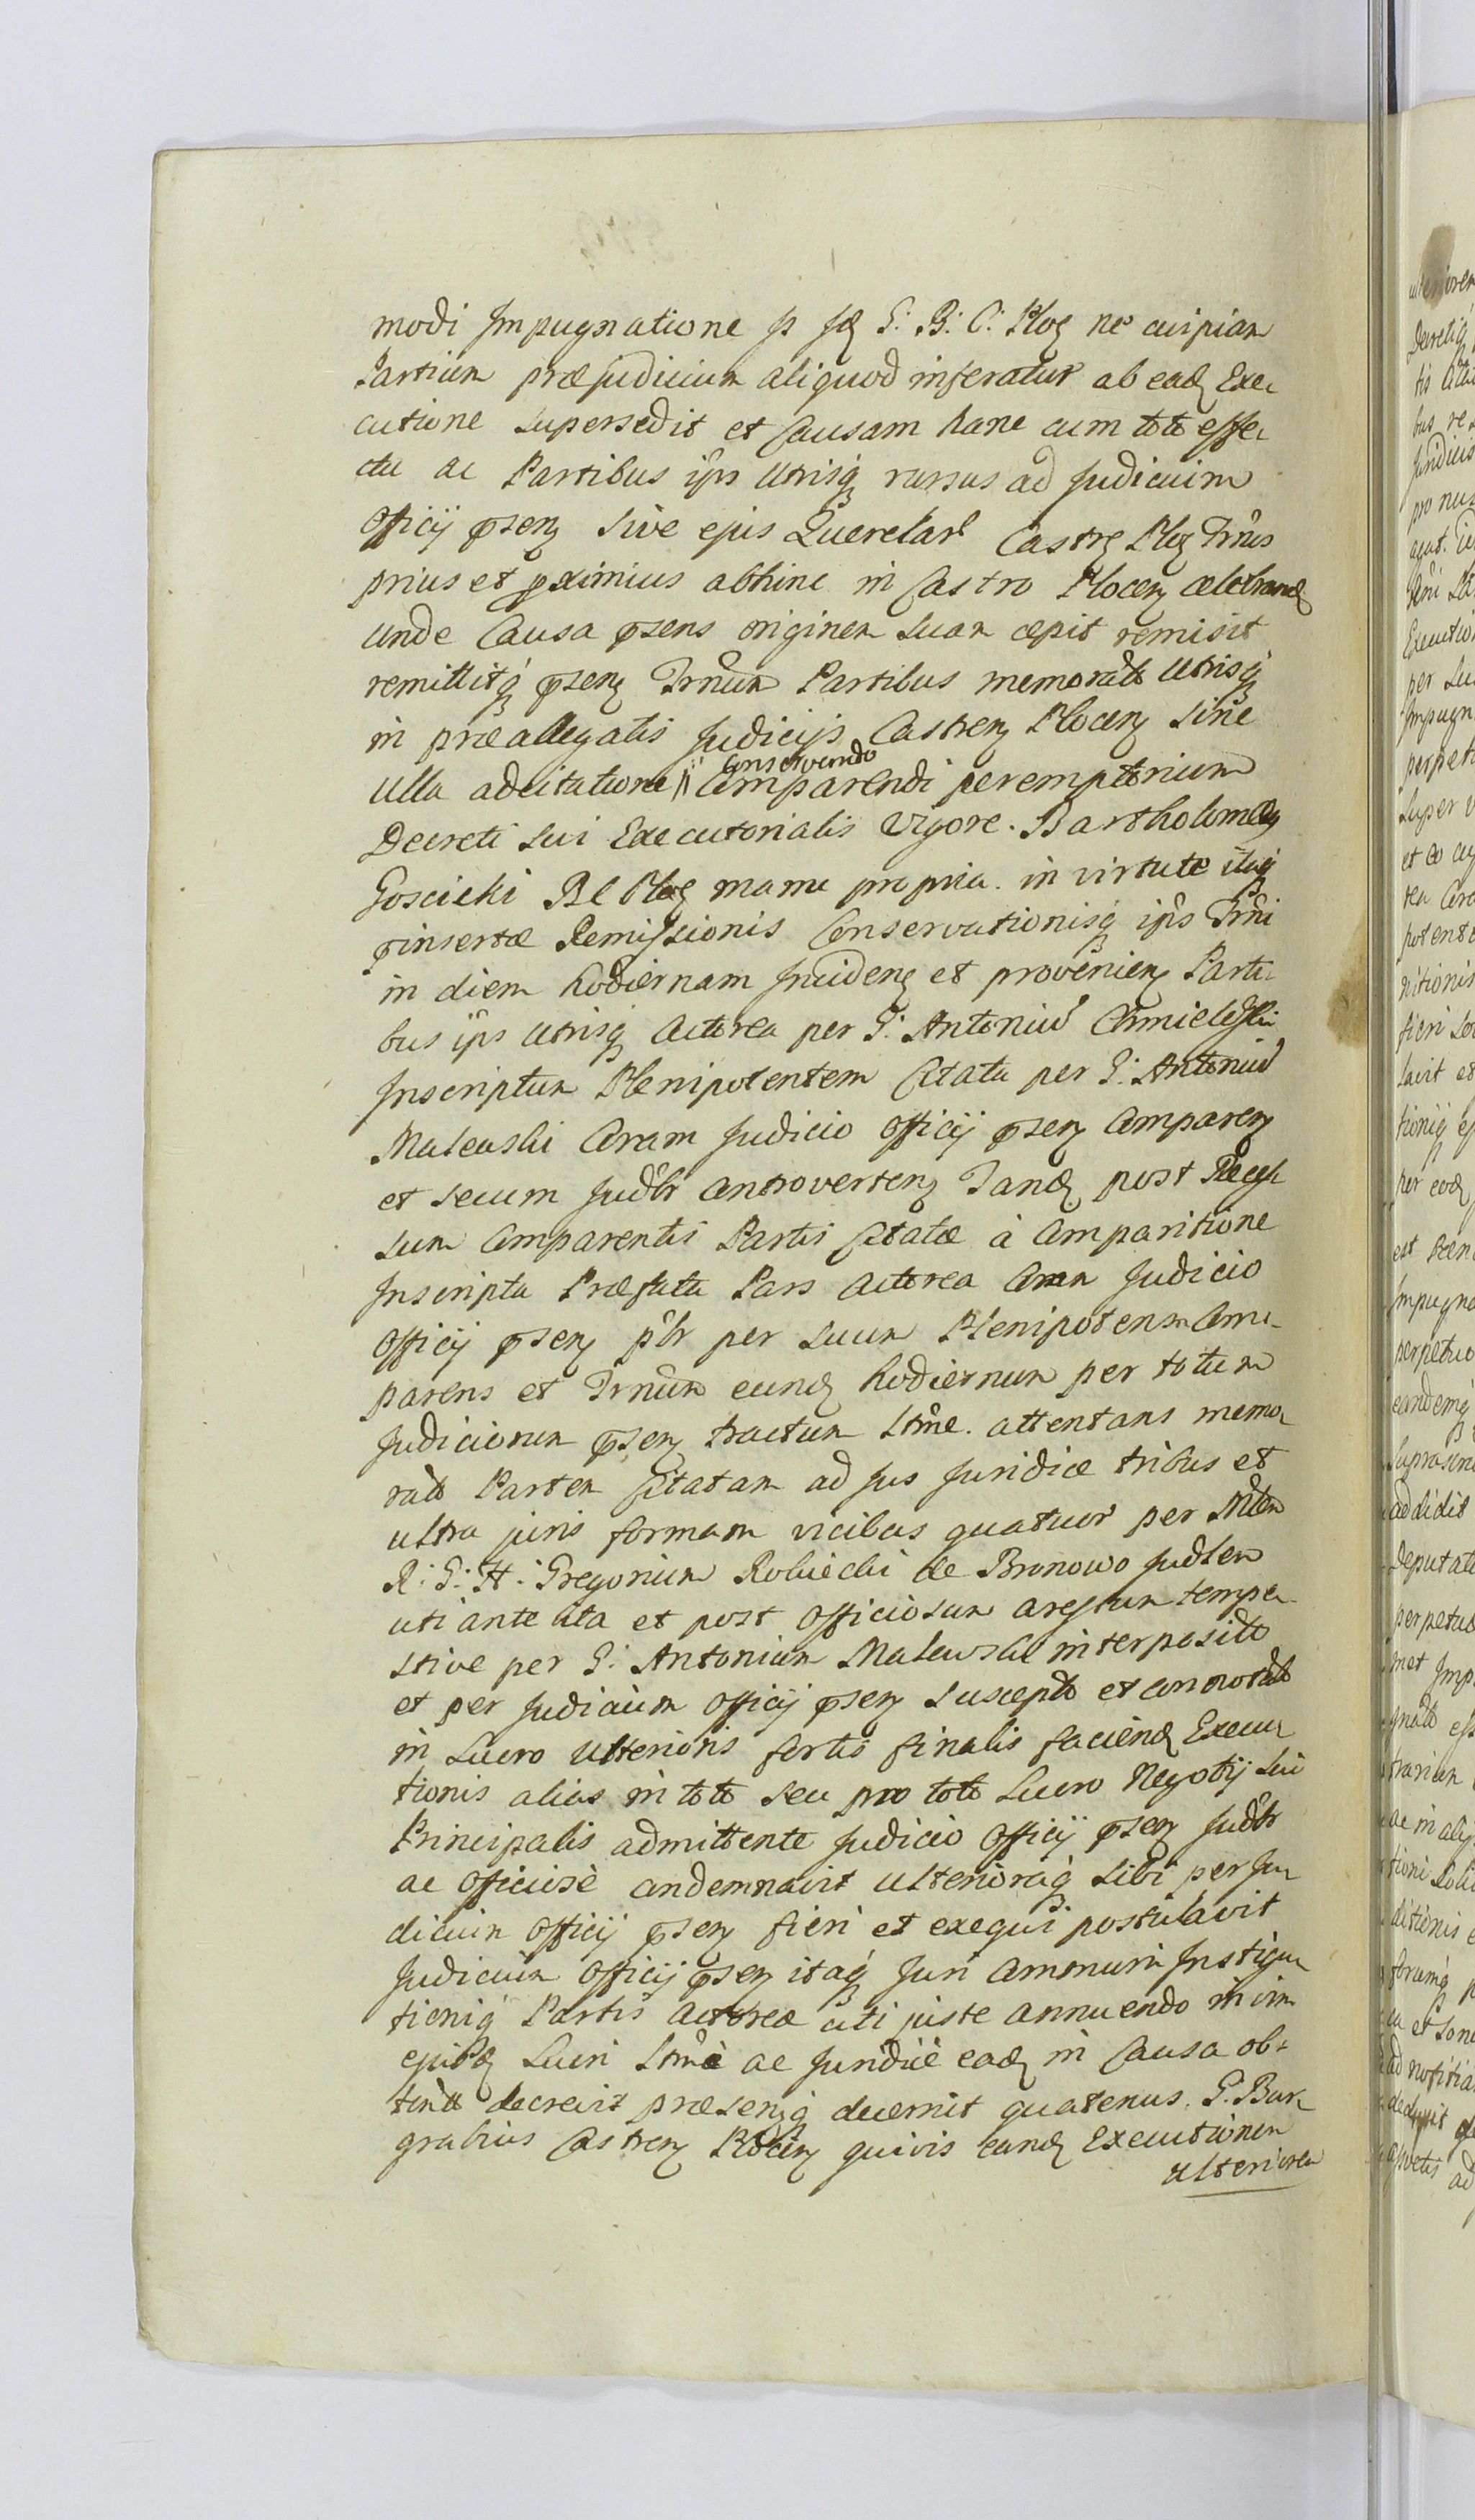 modi Impugnatione p Jꝫ G: B: C: Ploꝫ ne cuipiam
Partium præjudicium aliquod inferatur ab eadꝫ Exe-
cutione supersedit et Causam hanc cum toto effe-
ctu ac Partibus ip̃is Utrisqꝫ rursus ad Judicium
Officij p̃senꝫ sive ejus Querelar̃ Castrꝫ Plocꝫ Tr̃nis
prius et p̱ximius abhinc in Castro Plocenꝫ celebrandꝫ
unde Causa p̃sens originem suam cepit remisit
remittitqꝫ p̃senꝫ Tr̃num Partibus memoratis Utrisqꝫ
in præallegatis Judicijs Castrenꝫ Plocenꝫ sine
ulla adcitatione // Conservando Comparendi peremptorium
Decreti sui Executorialis vigore. Bartholomæus
Gościcki B C Plocꝫ manu propria. in virtute itaqꝫ
p̃insertæ Remissionis Conservationisqꝫ ip̃is Tr̃ni
in diem hodiernam Incidenꝫ et provenienꝫ Parti-
bus ip̃is Utrisqꝫ Actorea per G: Antoniũ Chmielewski
Inscriptum Plenipotentem Citata per G: Antoniũ
Malewski Coram Judicio Officij p̃senꝫ Comparenꝫ
et secum Jud̃lr Controvertenꝫ Tandꝫ post Reces-
sum Comparentis Partis Citatæ à Comparitione
Inscripta Præfata Pars Actorea Coram Judicio
Officij p̃senꝫ p̃lr per suum Plenipotentem Com-
parens et Tr̃num eundꝫ hodiernum per totum
Judiciorum p̃senꝫ tractum Ltm̃e. attentans memo-
ratã Partem Citatam ad Jus Juridice tribus et
ultra juris formam vicibus quatuor per Mtem
R: G: H: Gregorium Rokicki de Bronowo Judlem
uti ante ita et post Officiosum arestum tempe-
stive per G: Antonium Malewski interposit̃
et per Judicium Officij p̃senꝫ suscept̃ et connotat̃
in Lucro ulterioris fortis finalis faciendꝫ Execu-
tionis alias in toto seu pro toto Lucro Negotij sui
Principalis admittente Judicio Officij p̃senꝫ Jud̃lr
ac Officiosè condemnavit ulterioraqꝫ sibi per Ju-
dicium Officij p̃senꝫ fieri et exequi postulavit
Judicium Officij p̃senꝫ itaqꝫ Juri Communi Instiga-
tioniqꝫ Partis Actoreæ uti juste annuendo in vim
ejusdꝫ Lucri Ltm̃è ac Juridicè eadꝫ in Causa ob-
tentã decrevit præsensqꝫ decernit quatenus G. Bur-
grabius Castrenꝫ Plocenꝫ quivis eandꝫ Executionem
ulteriorem